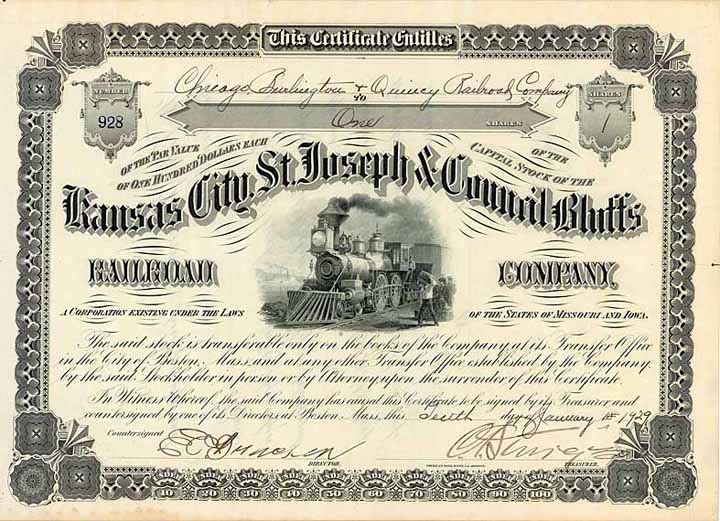 This Certificate Entitles
NUMBER
928
Chicago Burlington & Quincy Railroad Company
TO
One SHARES
SHARES
1
OF THE PAR VALUE
OF ONE HUNDRED DOLLARS EACH
OF THE
CAPITAL STOCK OF THE
Kansas City, St. Joseph & Council Bluffs
RAILROAD COMPANY
A CORPORATION EXISTING UNDER THE LAWS OF THE STATES OF MISSOURI AND IOWA.
The said stock is transferable only on the books of the Company at its Transfer Office
in the City of Boston, Mass. and at any other Transfer Office established by the Company,
by the said Stockholder in person or by Attorney, upon the surrender of this Certificate.
In Witness Whereof, the said Company has caused this Certificate to be signed by its Treasurer and
countersigned by one of its Directors at Boston, Mass. this day of January 1929
Countersigned
DIRECTOR.
TREASURER.
10 20 30 40 50 60 70 80 90 100